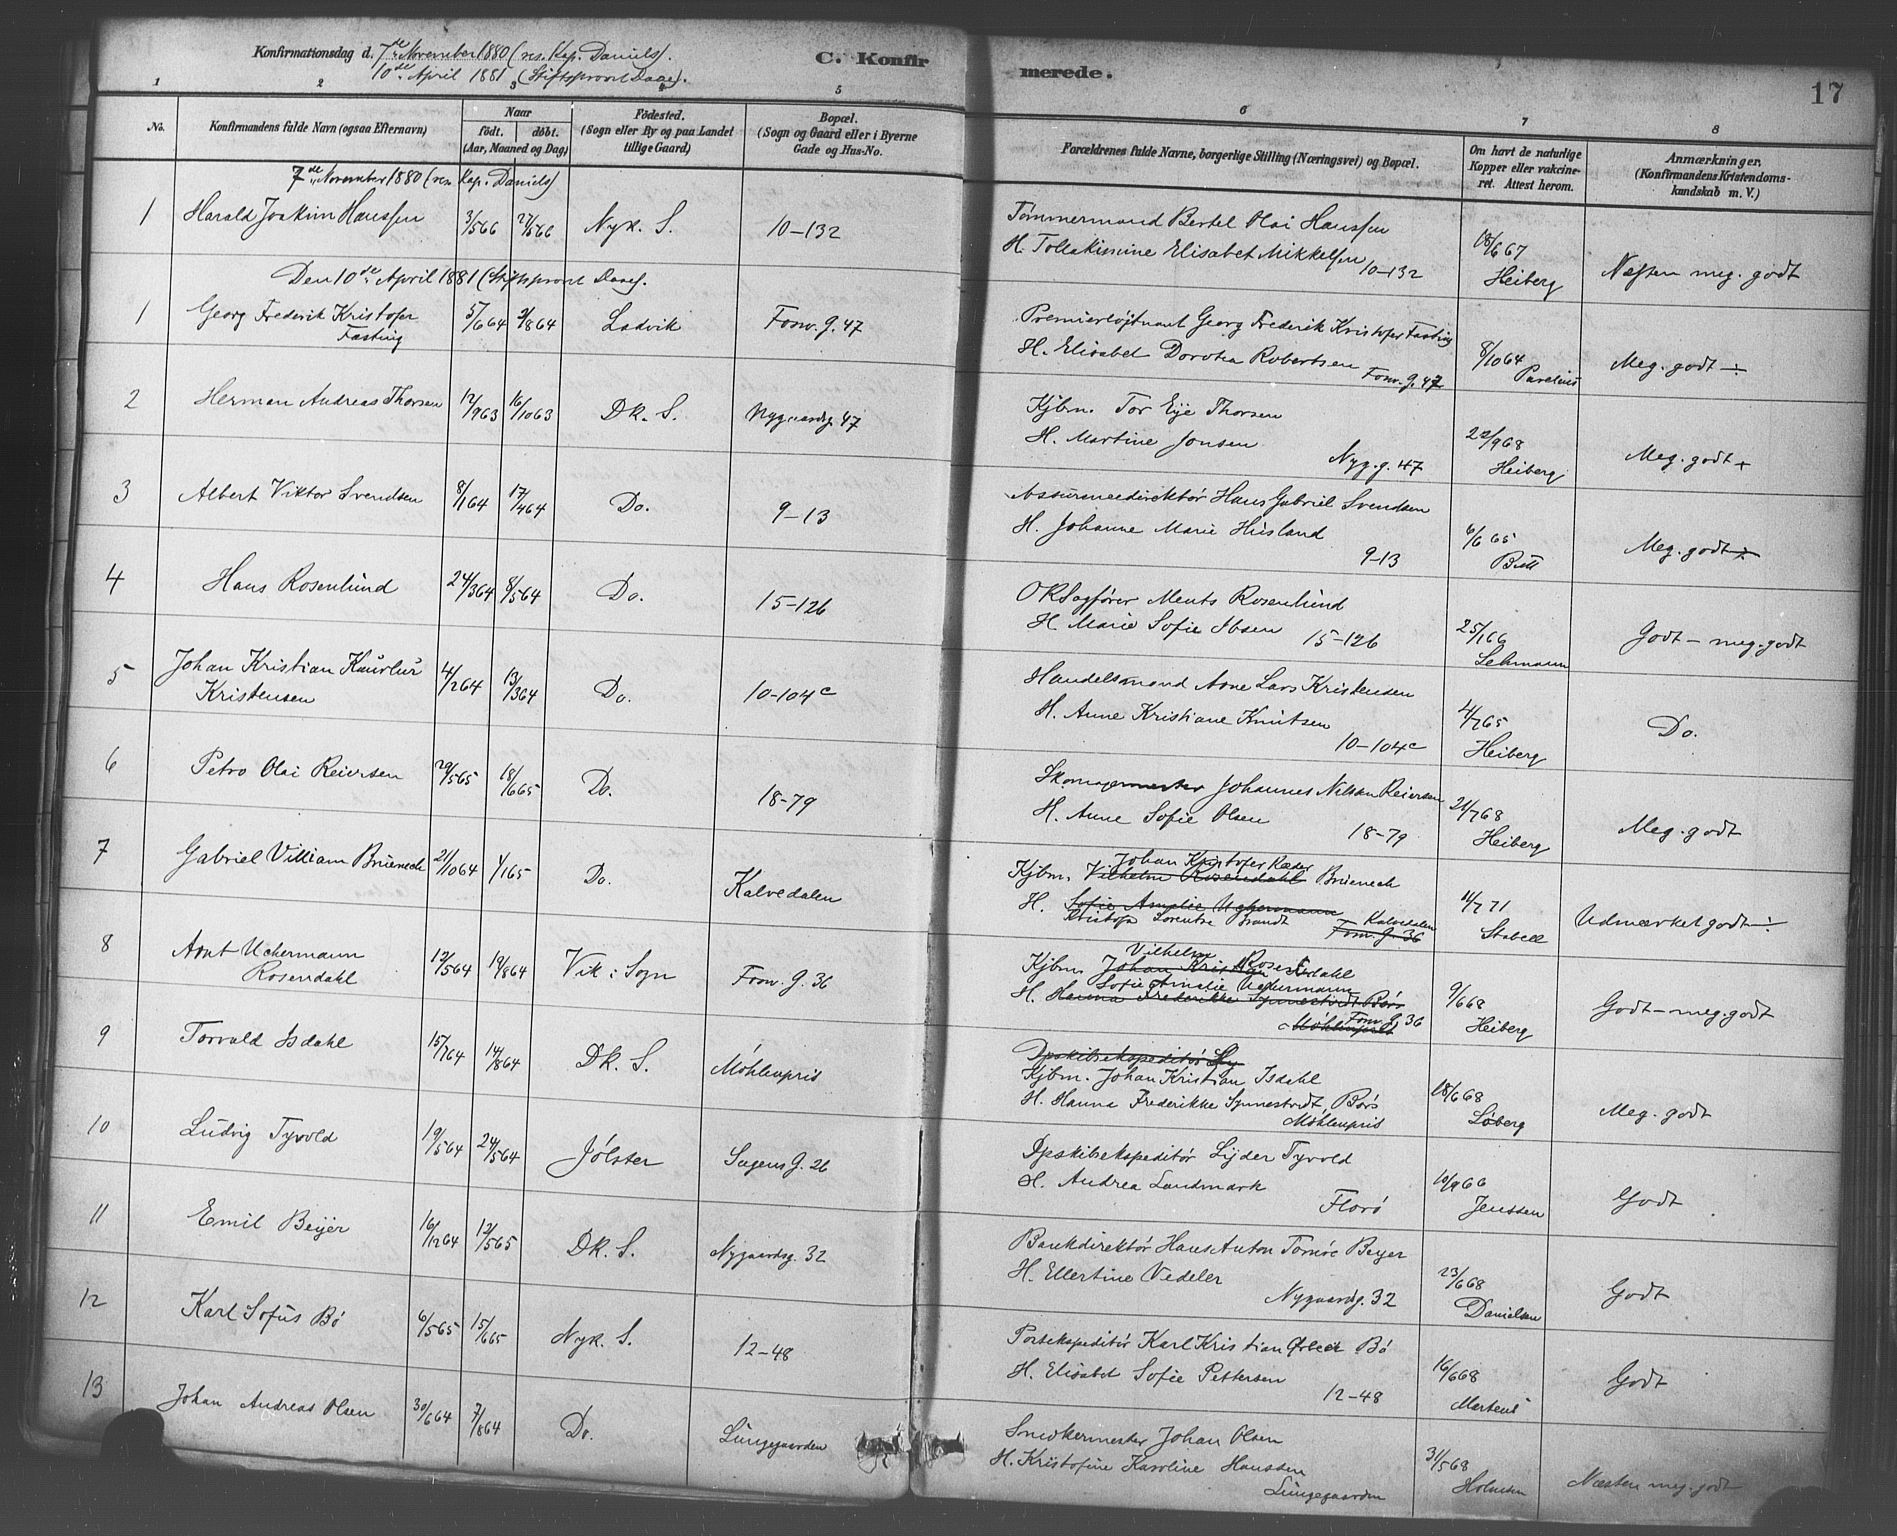 Konfirmationsdag d. 7de November 1880 (res. Kap. Daniels).
10de April 1881 (Stiftsprovst Daae).
C. Konfirmerede.
17
1 2 3 4 5 6 7 8
No. Konfirmandens fulde Navn (ogsaa Efternavn) Naar født. døbt. (Aar, Maaned og Dag) Fødested. (Sogn eller By og paa Landet tillige Gaard) Bopæl. (Sogn og Gaard eller i Byerne Gade og Hus-No. Forældrenes fulde Navne, borgerlige Stilling (Næringsvei) og Bopæl. Om havt de naturlige Kopper eller vakcineret. Attest herom. Anmærkninger. (Konfirmandens Kristendomskundskab m. V.)
7de November 1880 (res. Kap. Daniels)
1 Harald Joakim Hanssen 3/566 27/566 Nyk. S. 10-132 Tømmermand Bertel Olai Hanssen
H. Elisabet Mikkelsen 10-132 18/667 Heiberg Næsten meg. godt
Den 10de April 1881 (Stiftsprovst Daae).
1 Georg Frederik Kristofer Fasting 5/664 2/864 Ladvik Fosw. g. 47 Premierløjtnant Georg Frederik Kristofer Fasting
H. Elisabet Dorotea Robertsen Fosw. g. 47 8/1064 Parelius Meg. godt ÷
2 Herman Andreas Thorsen 12/963 16/1063 DK. S. Nygaardsg. 47 Kjbm. Tor Eije Thorsen
H. Martine Jonsen Nyg. g. 47 22/968 Heiberg Meg. godt +
3 Albert Viktor Svendsen 8/164 17/464 Do. 9-13 Assurancedirektør Hans Gabriel Svendsen
H. Johanne Marie Husland 9-13 6/665 Bull Meg. godt
4 Hans Rosenlund 24/364 8/564 Do. 15-126 ORSagfører Ments Rosenlund
H. Marie Sofie Ibsen 15-126 25/166 Lehmann Godt - meg. godt
5 Johan Kristian Kristensen 4/264 13/364 Do. 10-104c Handelsmand Arne Lars Kristensen
H. Anne Kristiane Knutsen 10-104c 4/765 Heiberg Do.
6 Petro Olai Reiersen 29/565 18/665 Do. 18-79 Skomagermester Johannes Nilsen Reiersen
H. Anne Sofie Olsen 18-79 21/768 Heiberg Meg. godt
7 Gabriel Villiam Bruenech 21/1064 1/165 Do. Kalvedalen Johan Kristofer Ræder
Kjbm. Vilhelm Rosendahl Bruenech
H. Sofie Amelie Uchermann
Lorentze Brandt Kalvedalen
Fosw. G. 36 11/771 Stabell Udmærket godt ÷
8 Arnt Uchermann Rosendahl 12/564 19/864 Vik i Sogn Fosw. G. 36 Vilhelm Rosendahl
Kjbm. Johan Kristian Isdahl
Sofie Amelie Uchermann
H. Hanna Frederikke Synnestvedt Børs
Fosw. G. 36
Møhlenpris 9/668 Heiberg Godt - meg. godt
9 Torvald Isdahl 15/764 14/864 DK. S. Møhlenpris Dpskibsekspeditør
Kjbm. Johan Kristian Isdahl
H. Hanna Frederikke Synnestvedt Børs
Møhlenpris 18/668 Løberg Meg. godt
10 Ludvig Tyvold 19/564 24/564 Jølster Sagens G. 26 Dpskibsekspeditør Lyder Tyvold
H. Andrea Landmark Florø 10/966 Jenssen Godt
11 Emil Beyer 16/1264 12/565 DK. S. Nygaardsg. 32 Bankdirektør Hans Anton Tornøe Beyer
H. Ellertine Vedeler Nygaardsg. 32 23/668 Danielsen Godt
12 Karl Sofus Bø 6/565 15/665 Nyk. S. 12-48 Postekspeditør Karl Kristian Ørbeck Bø
H. Elisabet Sofie Pettersen 12-48 16/668 Martens Godt
13 Johan Andreas Olsen 30/664 7/864 Do. Lungegaarden Snedkermester Johan Olsen
H. Kristofine Karoline Hanssen
Lungegaarden 31/568 Holmsen Næsten meg. godt